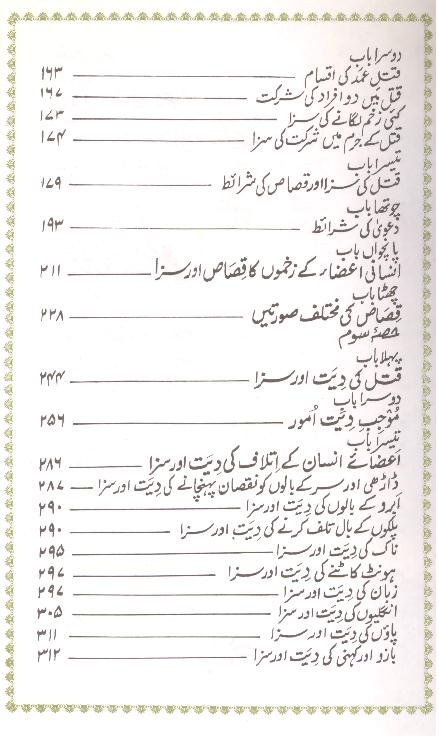 دوسرا باب
قتل عمد کی اقسام ۱۶۳
قتل میں دو افراد کی شرکت ۱۶۷
کئی زخم لگانے کی سزا ۱۷۳
قتل کے جرم میں شرکت کی سزا ۱۷۴
تیسرا باب
قتل کی سزا اور قصاص کی شرائط ۱۷۹
چوتھا باب
دعویٰ کی شرائط ۱۹۳
پانچواں باب
انسانی اعضاء کے زخموں کا قصاص اور سزا ۲۱۱
چھٹا باب
قصاص کی مختلف صورتیں ۲۲۸
حصۂ سوم
پہلا باب
قتل کی دِیَت اور سزا ۲۴۴
دوسرا باب
مُوْجبِ دِیَت اُمور ۲۵۶
تیسرا باب
اَعضائے انسان کے اِتلاف کی دِیَت اور سزا ۲۸۶
ڈاڑھی اور سر کے بالوں کو نقصان پہنچانے کی دِیَت اور سزا ۲۸۷
اَبرو کے بالوں کی دِیَت اور سزا ۲۹۰
پلکوں کے بال تلف کرنے کی دِیَت اور سزا ۲۹۰
ناک کی دِیَت اور سزا ۲۹۵
ہونٹ کاٹنے کی دِیَت اور سزا ۲۹۷
زبان کی دِیَت اور سزا ۲۹۷
انگلیوں کی دِیَت اور سزا ۳۰۵
پاؤں کی دِیَت اور سزا ۳۱۱
بازو اور کہنی کی دِیَت اور سزا ۳۱۲